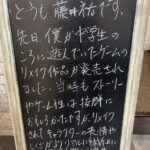 どうも藤井祐です。
先日、僕が中学生の
ころに遊んでいたゲームの
リメイク作品が発売され
ました。当時もストーリー
やゲーム性は抜群に
おもしろかったですが、リメイク
され、キャラクターの表情や